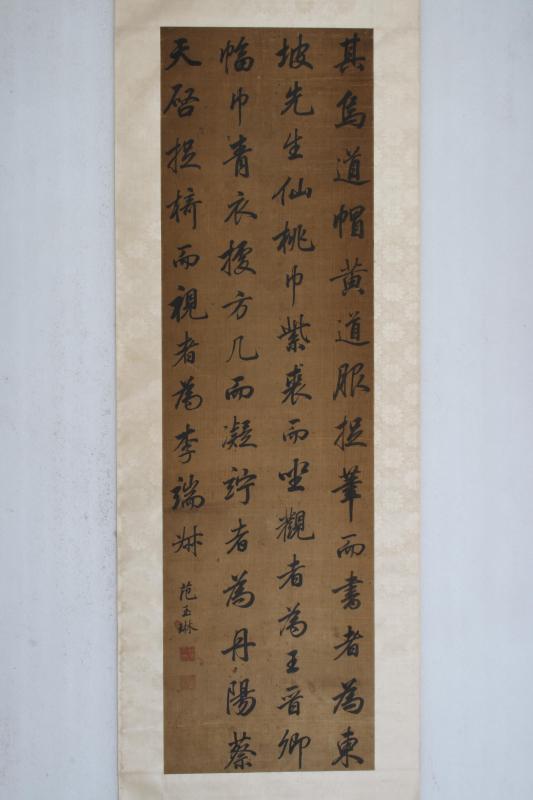 其烏道帽黃道服捉筆而書者為東
坡先生仙桃巾紫裘而坐觀者為王晉卿
幅巾青衣據方几而凝竚者為丹陽蔡
天啓捉椅而視者為李端叔
范玉琳